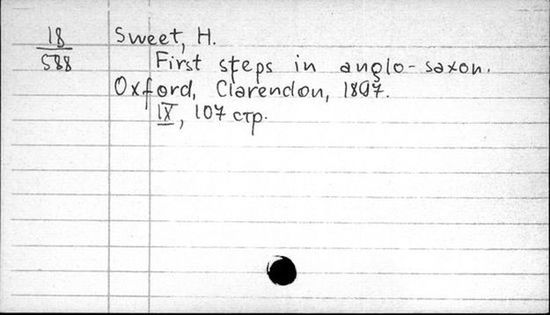 18 Sweet, H.
588 First steps in anglo-saxon.
Oxford, Clarendon, 1897.
IX, 107 стр.